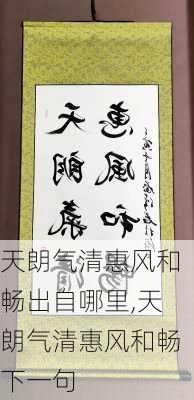 天朗氣
惠風和
天朗气清惠风和
畅出自哪里,天
朗气清惠风和畅
下一句